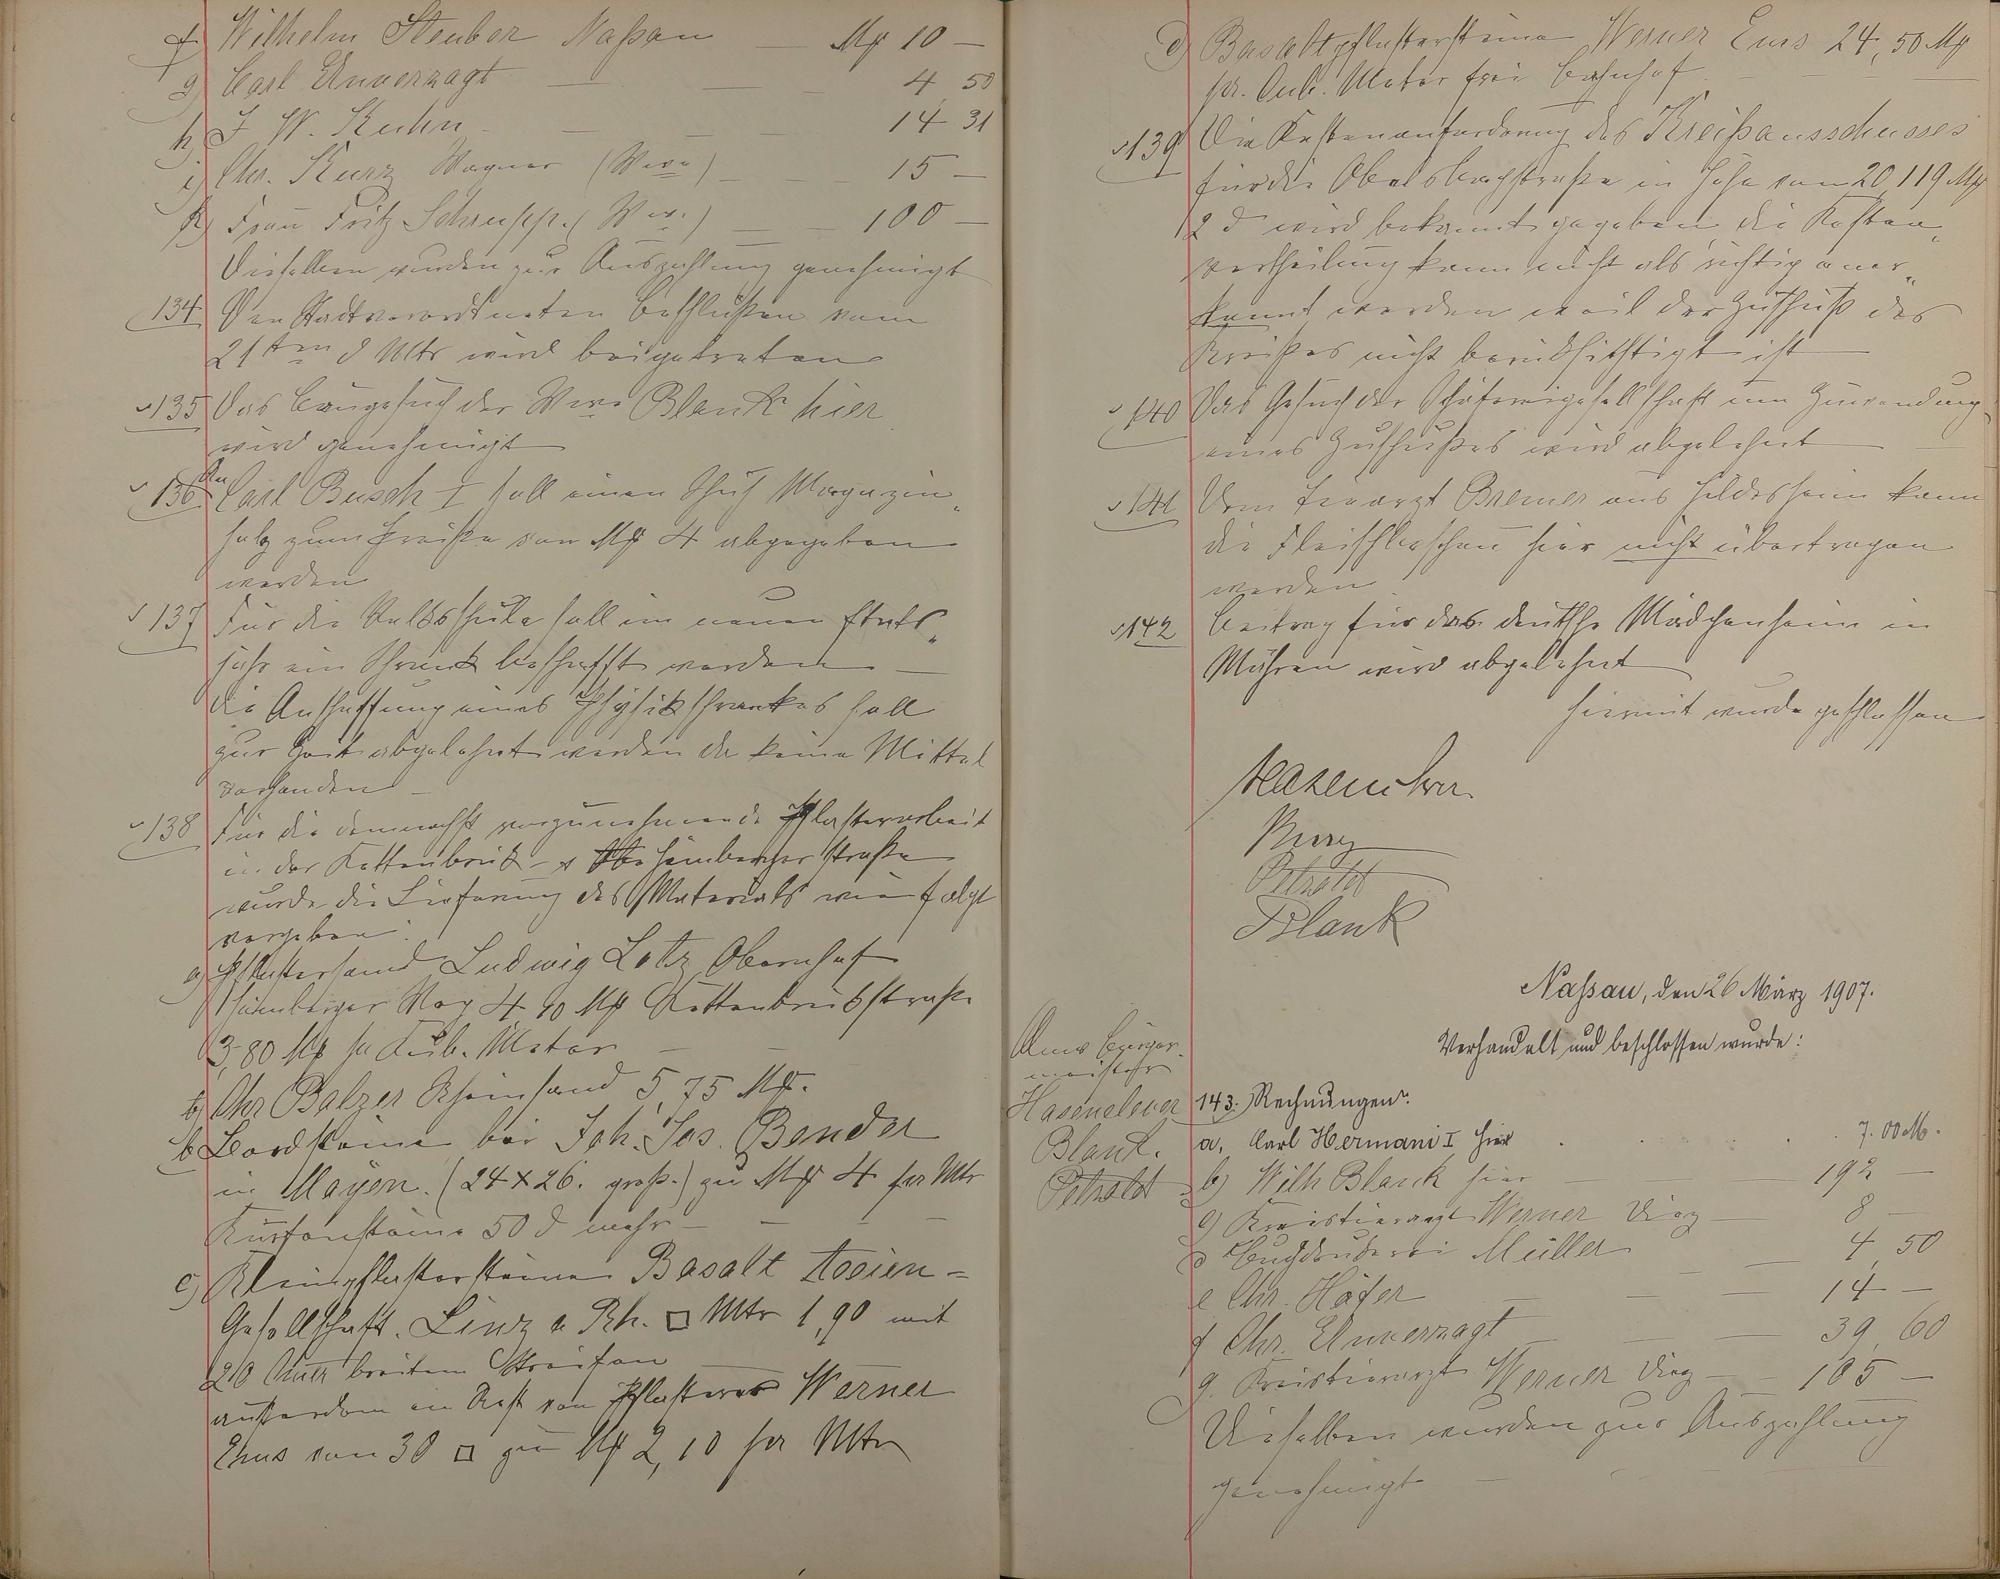 f) Wilhelm Steuber Naßau — Mk 10 —
g) Carl Unverzagt — — — 4 50
h) J. W. Kuhn — — — 14 31
i) Chr. Kurz Wagner (Wwe) — — 15 —
k) Frau Fritz Schrupp. (Wwe.) — — 100 —
Dieselben wurden zur Auszahlung genehmigt
134 Den Stadtverordneten Beschlüßen vom
21ten d Mts wird beigetreten
135 Das Baugesuch der Wwe Blank hier
wird genehmigt
136 An Carl Busch I soll einen Schuh Magazin-
holz zum Preiße von Mk 4 abgegeben
werden
137 Für die Volksschule soll im neuen Etats-
jahr ein Schrank beschafft werden —
die Anschaffung eines Physikschrankes soll
zur Zeit abgelehnt werden da keine Mittel
vorhanden —
138 Für die demnächst vorzunehmende Pflasterarbeit
in der Kettenbrück- & Scheuernberger Straße
wurde die Lieferung des Materials wie folgt
vergeben:
a) Pflastersand Ludwig Lotz Obernhof
Weg 4,90 Mk Kettenbrückstraße
3,80 Mk pr Kub. Meter — —
b) Chr Balzer Rheinsand 5,75 Mk.
b Bordsteine bei Joh. Jos. Bender
in Mayen. (24 x 26. groß.) zu Mk 4 per Mtr
Kurfensteine 50 d mehr — — —
c) Kleinpflastersteine Basalt Actien=
Gesellschaft. Linz a Rh. □ Mtr 1,90 mit
20 Ctmr breitem Streifen
außerdem ein Rest von Pflasterer Werner
Ems von 30 □ zu Mk 2,10 per Mtr
d) Basaltpflastersteine Werner Ems 24,50 Mk
pr. Cub. Meter frei Bahnhof
139 Die Kostenanforderung des Kreißausschusses
für die Oberlahnstraße in Höhe von 20,119 Mk
2 d wird bekannt gegeben die Kosten-
vertheilung kann nicht als richtig aner-
kannt werden weil der Zuschuß des
Kreißes nicht berücksichtigt ist
140 Das Gesuch der Schäfereigesellschaft um Zuwendung
eines Zuschußes wird abgelehnt
141 Dem Tierarzt Bremer aus Hildesheim kann
die Fleischbeschau hier nicht übertragen
werden.
142 Beitrag für das deutsche Mädchenheim in
Mähren wird abgelehnt
Hiermit wurde geschlossen
Hasenclever
Kurz
Petzold
Blank
Nassau, den 26 März 1907.
Verhandelt und beschlossen wurde:
Anw Bürger-
meister
Hasenclever
Blank.
Petzold
143.) Rechnungen:
a, Carl Hermani I hier . . . . 7.00 M.
b) Wilh Blank hier — 192 —
c) Kreistierarzt Werner Diez — 8 —
d Buchdruckerei Müller — — 4,50
e Chr. Höfer — — — 14 —
f Chr. Unverzagt — — — 39,60
g. Kreistierarzt Werner Diez — 105 —
Dieselben wurden zur Auszahlung
genehmigt —